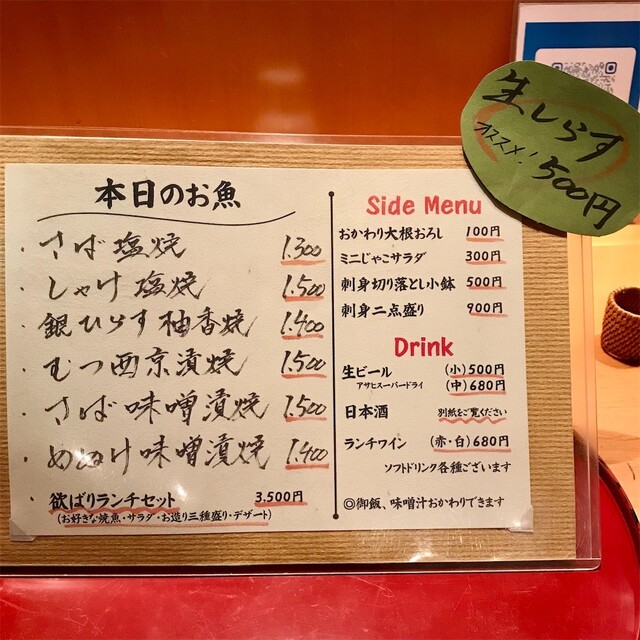 生しらす
オススメ！500円
本日のお魚
・さば塩焼 1.300
・しゃけ塩焼 1.500
・銀ひらす柚香焼 1.400
・むつ西京漬焼 1.500
・さば味噌漬焼 1.500
・めぬけ味噌漬焼 1.400
・欲ばりランチセット 3.500円
(お好きな焼魚・サラダ・お造り三種盛り・デザート)
Side Menu
おかわり大根おろし 100円
ミニじゃこサラダ 300円
刺身切り落とし小鉢 500円
刺身二点盛り 900円
Drink
生ビール (小)500円
アサヒスーパードライ (中)680円
日本酒 別紙をご覧ください
ランチワイン (赤・白)680円
ソフトドリンク各種ございます
◎御飯、味噌汁おかわりできます